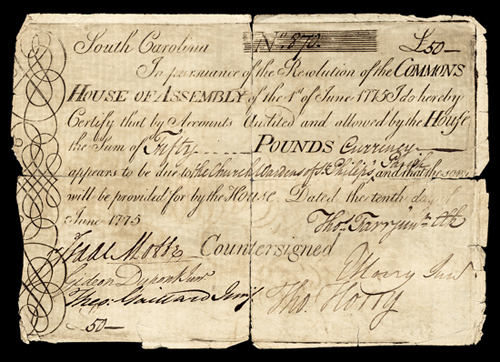 South Carolina No. 870. £50—
In pursuance of the Resolution of the COMMONS
HOUSE OF ASSEMBLY of the 1st of June 1775 I do hereby
Certify that by Accounts Audited and allowed by the HOUSE
the Sum of Fifty POUNDS Currency
appears to be due to the Church Wardens of St. Philip's Parish and that the same
will be provided for by the HOUSE. Dated the tenth day of
June 1775
Thos. Farr junr. Clk
Isaac Motte Countersigned
Gideon Dupont Junr
Theo. Gaillard Junr
Horry Junr
Thos. Horry
50—